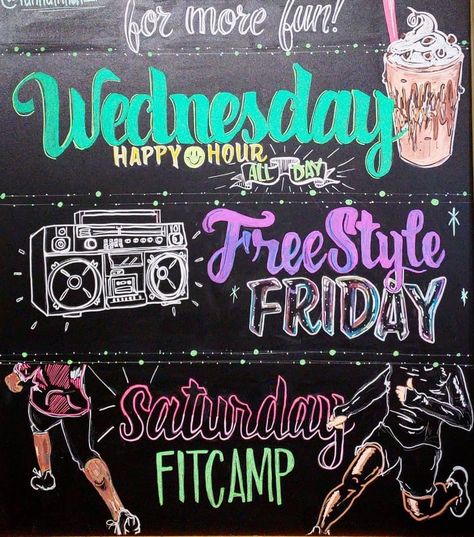 for more fun!
Wednesday
HAPPY HOUR
ALL DAY
FreeStyle
FRIDAY
Saturday
FITCAMP